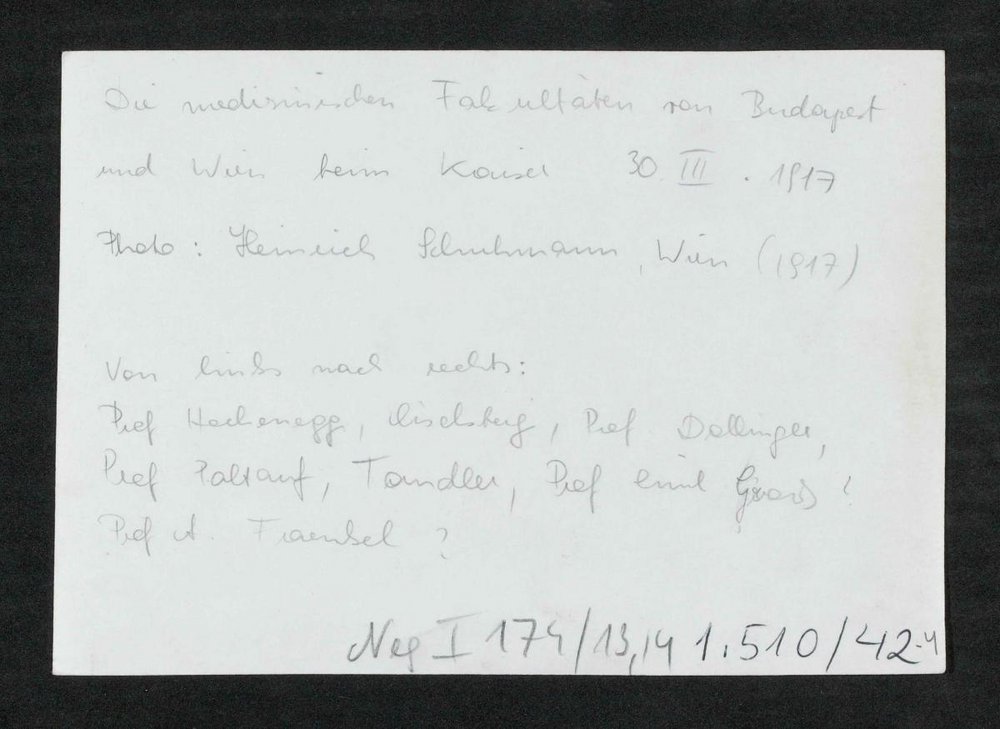 Die medizinischen Fakultäten von Budapest
und Wien beim Kaiser 30 III. 1917
Photo: Heinrich Schuhmann, Wien (1917)
Von links nach rechts:
Prof Hochenegg, Eiselsberg, Prof Dollinger,
Prof Paltauf, Tandler, Prof Emil Grosz ?
Prof A. Fraenkel ?
Neg I 174/13,14 1.510/42-4